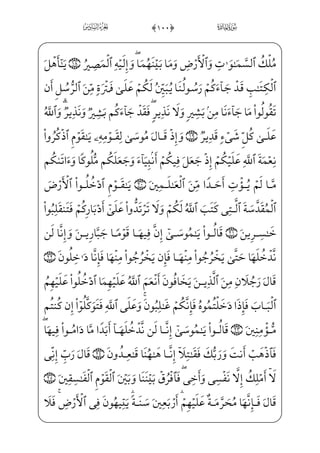 سورة المائدة ﴿١٠٠﴾ الجزء السادس
مُلْكُ ٱلسَّمَٰوَٰتِ وَٱلْأَرْضِ وَمَا بَيْنَهُمَا ۖ وَإِلَيْهِ ٱلْمَصِيرُ ﴿١٨﴾ يَٰٓأَهْلَ
ٱلْكِتَٰبِ قَدْ جَآءَكُمْ رَسُولُنَا يُبَيِّنُ لَكُمْ عَلَىٰ فَتْرَةٍ مِّنَ ٱلرُّسُلِ أَن
تَقُولُوا۟ مَا جَآءَنَا مِنۢ بَشِيرٍ وَلَا نَذِيرٍ ۖ فَقَدْ جَآءَكُم بَشِيرٌ وَنَذِيرٌ ۗ وَٱللَّهُ
عَلَىٰ كُلِّ شَىْءٍ قَدِيرٌ ﴿١٩﴾ وَإِذْ قَالَ مُوسَىٰ لِقَوْمِهِۦ يَٰقَوْمِ ٱذْكُرُوا۟
نِعْمَةَ ٱللَّهِ عَلَيْكُمْ إِذْ جَعَلَ فِيكُمْ أَنۢبِيَآءَ وَجَعَلَكُم مُّلُوكًا وَءَاتَىٰكُم
مَّا لَمْ يُؤْتِ أَحَدًا مِّنَ ٱلْعَٰلَمِينَ ﴿٢٠﴾ يَٰقَوْمِ ٱدْخُلُوا۟ ٱلْأَرْضَ
ٱلْمُقَدَّسَةَ ٱلَّتِى كَتَبَ ٱللَّهُ لَكُمْ وَلَا تَرْتَدُّوا۟ عَلَىٰٓ أَدْبَارِكُمْ فَتَنقَلِبُوا۟
خَٰسِرِينَ ﴿٢١﴾ قَالُوا۟ يَٰمُوسَىٰٓ إِنَّ فِيهَا قَوْمًا جَبَّارِينَ وَإِنَّا لَن
نَّدْخُلَهَا حَتَّىٰ يَخْرُجُوا۟ مِنْهَا فَإِن يَخْرُجُوا۟ مِنْهَا فَإِنَّا دَٰخِلُونَ ﴿٢٢﴾
قَالَ رَجُلَانِ مِنَ ٱلَّذِينَ يَخَافُونَ أَنْعَمَ ٱللَّهُ عَلَيْهِمَا ٱدْخُلُوا۟ عَلَيْهِمُ
ٱلْبَابَ فَإِذَا دَخَلْتُمُوهُ فَإِنَّكُمْ غَٰلِبُونَ ۚ وَعَلَى ٱللَّهِ فَتَوَكَّلُوٓا۟ إِن كُنتُم
مُّؤْمِنِينَ ﴿٢٣﴾ قَالُوا۟ يَٰمُوسَىٰٓ إِنَّا لَن نَّدْخُلَهَآ أَبَدًا مَّا دَامُوا۟ فِيهَا ۖ
فَٱذْهَبْ أَنتَ وَرَبُّكَ فَقَٰتِلَآ إِنَّا هَٰهُنَا قَٰعِدُونَ ﴿٢٤﴾ قَالَ رَبِّ إِنِّى
لَآ أَمْلِكُ إِلَّا نَفْسِى وَأَخِى ۖ فَٱفْرُقْ بَيْنَنَا وَبَيْنَ ٱلْقَوْمِ ٱلْفَٰسِقِينَ ﴿٢٥﴾
قَالَ فَإِنَّهَا مُحَرَّمَةٌ عَلَيْهِمْ ۛ أَرْبَعِينَ سَنَةً ۛ يَتِيهُونَ فِى ٱلْأَرْضِ ۚ فَلَا